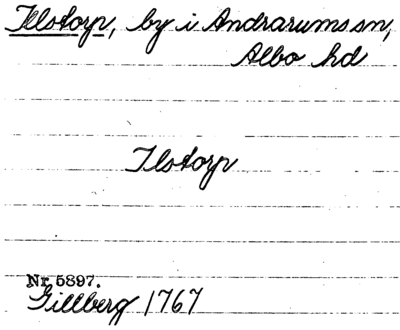 Illstorp, by i Andrarums sn,
Albo hd
Ilstorp
Nr 5897.
Gillberg 1767